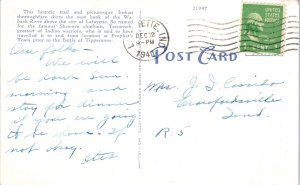 This historic trail and picturesque Indian
thoroughfare skirts the west bank of the Wa-
bash River above the city of Lafayette. So named
for the famous Shawnee chieftain, Tecumseh,
greatest of Indian warriors, who is said to
have traveled to and from location at Prophet's
Town prior to the Battle of Tippecanoe.
21907
LAFAYETTE, IND.
DEC 12
PM
1940
UNITED
STATES
POSTAGE
1¢
POST CARD
Dear folks-
We will
be down Sun.
morning and
stay for dinner
if your are going
to be home. If
not okay.
Mrs. J. I.
Crawfordsville
Ind.
R 5